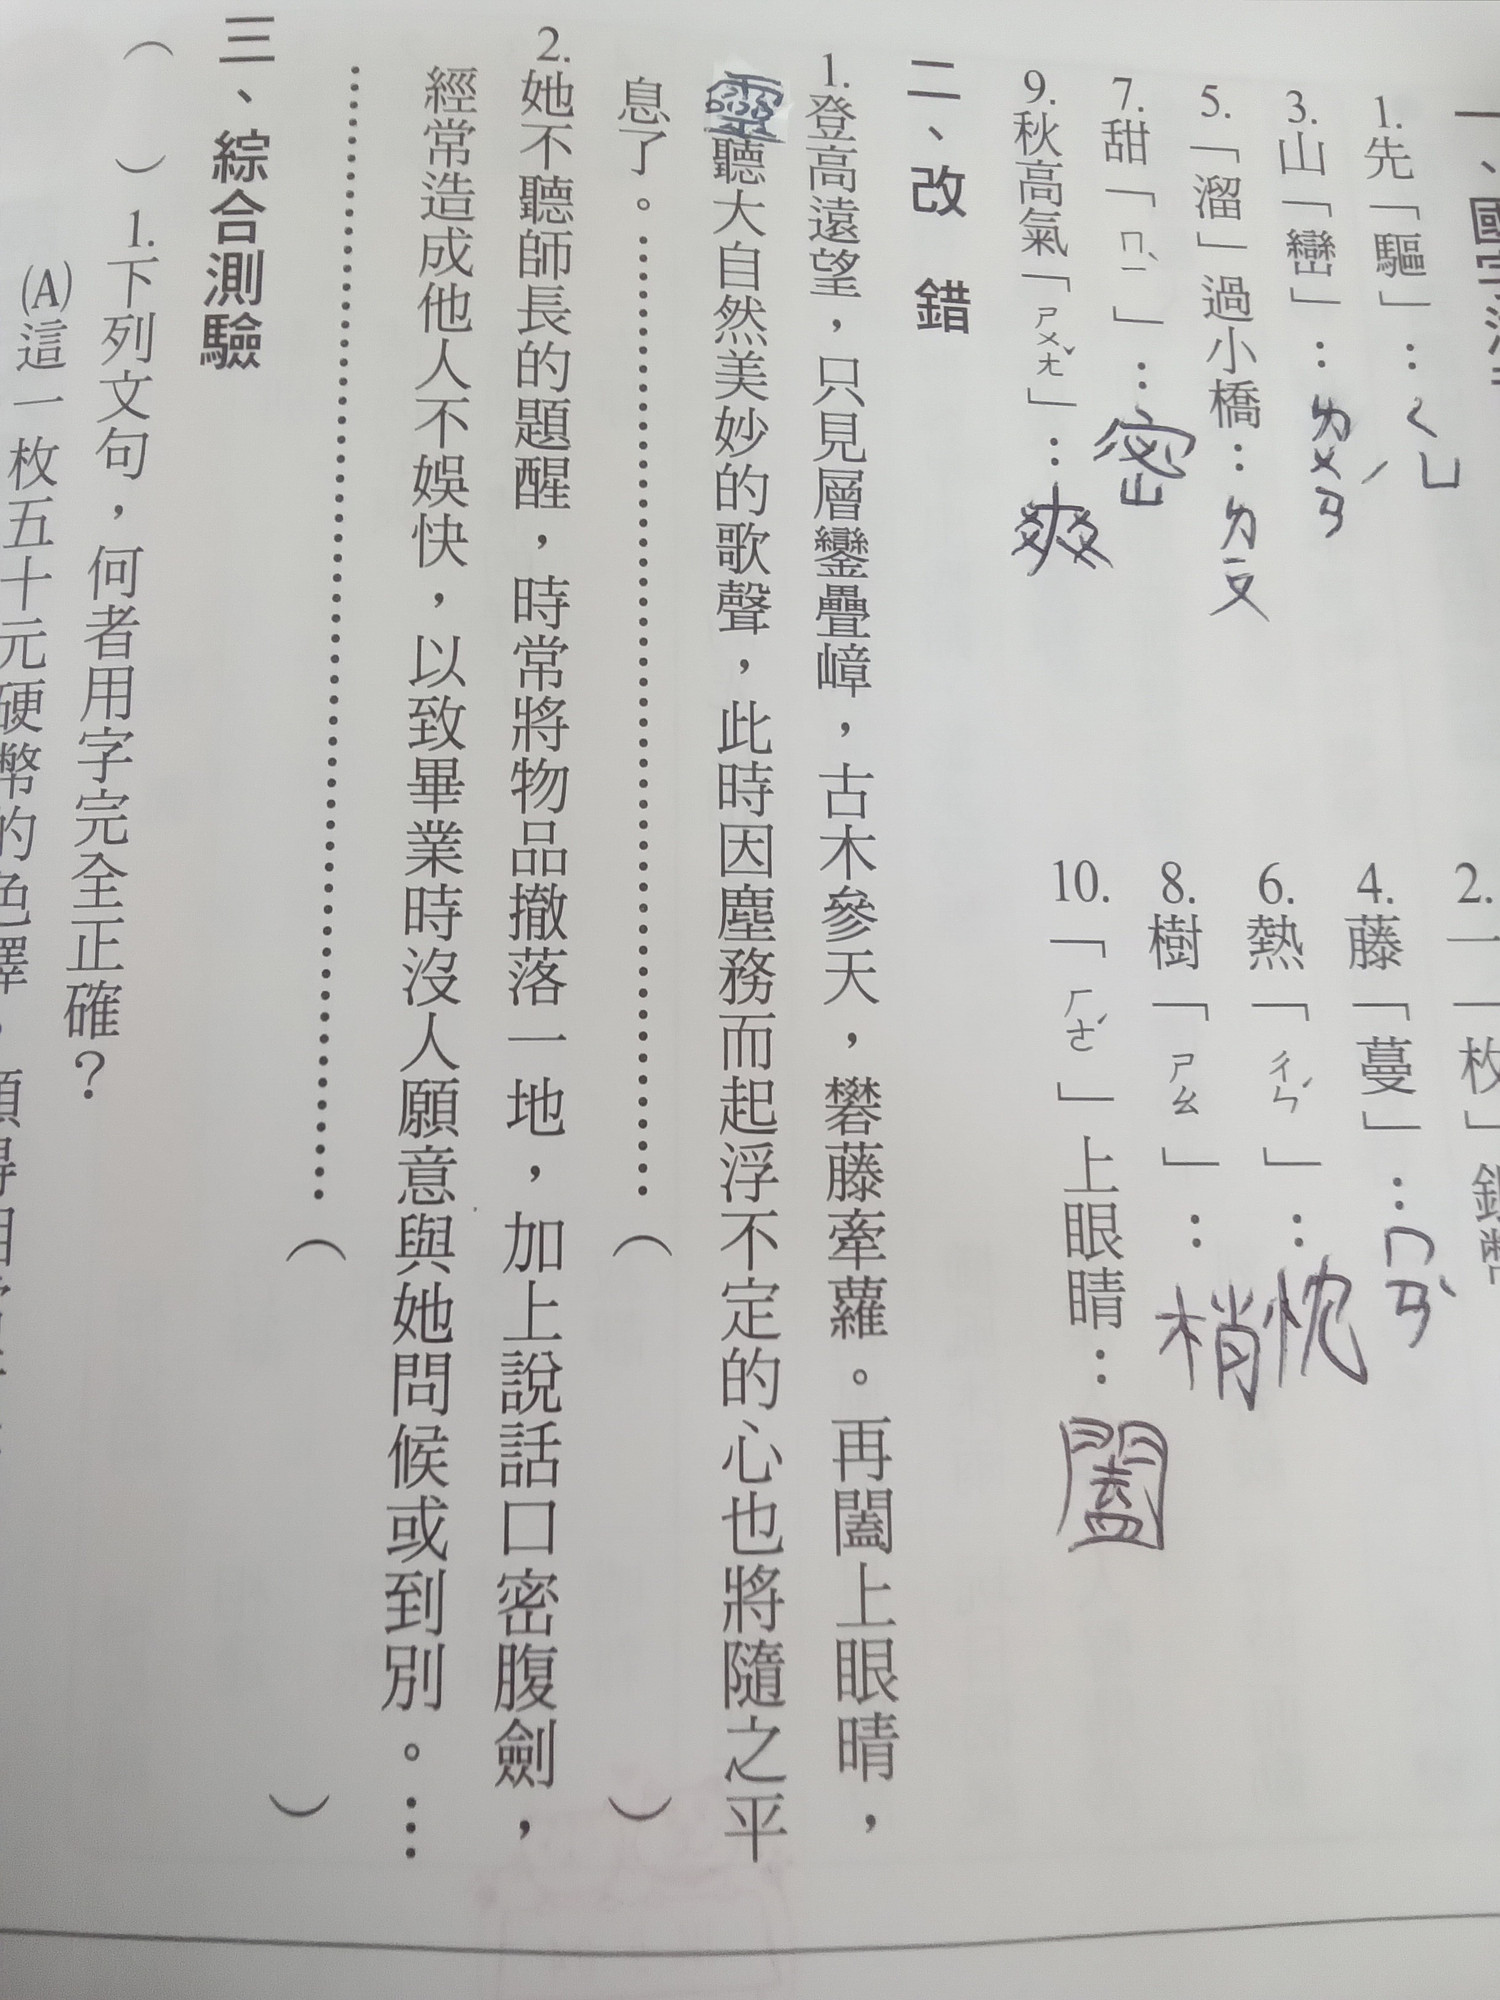 一、國字
1.先「驅」：ㄑㄩ
2.一「枚」
3.山「巒」：ㄌㄨㄢˊ
4.藤「蔓」：ㄇㄢˋ
5.「溜」過小橋：ㄌㄧㄡ
6.熱「ㄔㄣˊ」：忱
7.甜「ㄇㄧˋ」：密
8.樹「ㄕㄠ」：梢
9.秋高氣「ㄕㄨㄤˇ」：爽
10.「ㄏㄜˊ」上眼睛：闔
二、改 錯
1.登高遠望，只見層鑾疊嶂，古木參天，礬藤牽蘿。再闔上眼晴，
靈聽大自然美妙的歌聲，此時因塵務而起浮不定的心也將隨之平
息了。……（ ）
2.她不聽師長的題醒，時常將物品撤落一地，加上說話口密腹劍，
經常造成他人不娛快，以致畢業時沒人願意與她問候或到別。…
……（ ）
三、綜合測驗
（ ）1.下列文句，何者用字完全正確？
(A)這一枚五十元硬幣的色澤，